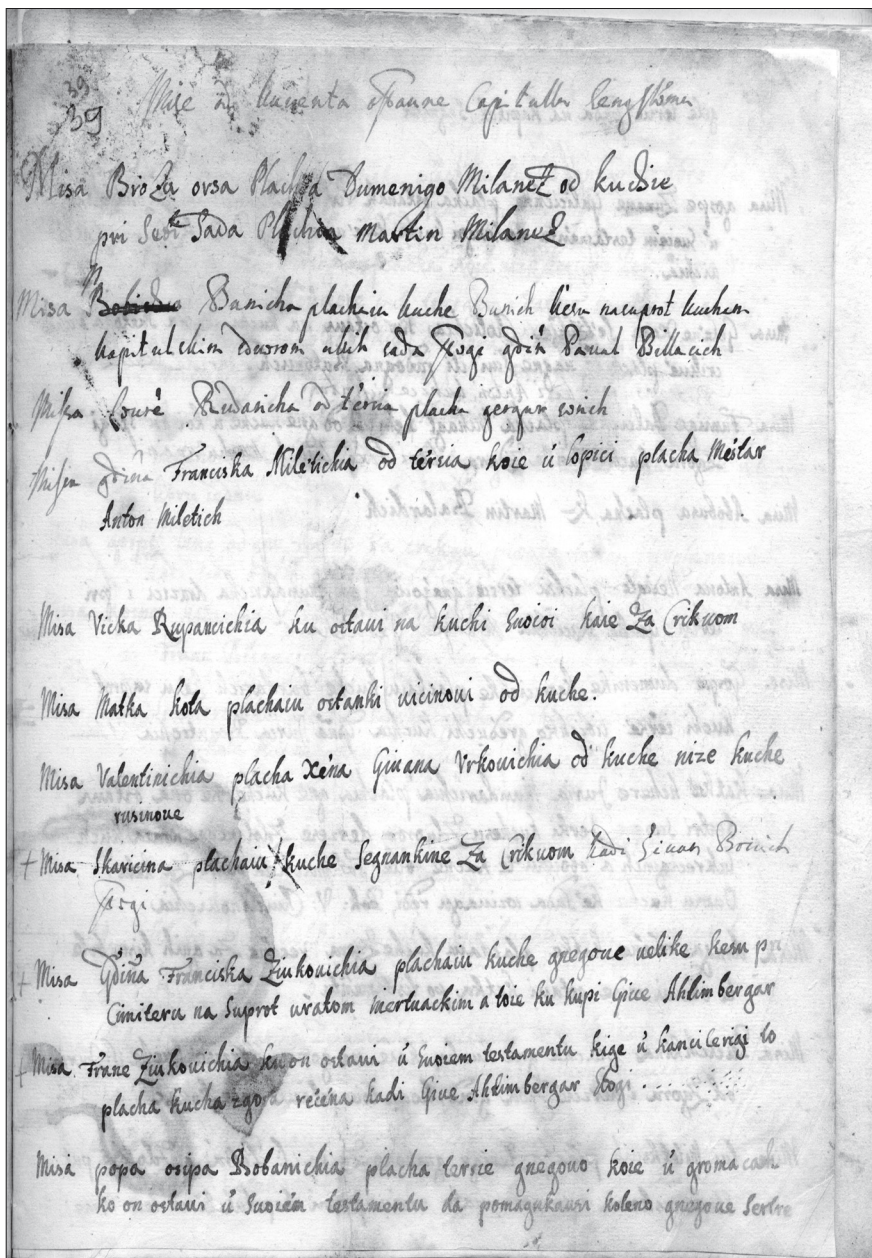 39
39
Mise
Misa Broza orsa Placha Dumenigo Milanez od kuchie
pri Sada Placha Martin Milanez
Misa Banicha plachaiu kuche Bunich kesu nasuprot kucham
kapitulskim sada stogi gdin Paval Billacich
Misa Lourè Rudanicha od tersia placha
Misa gdina Franciska Miletichia od tèrsia koie ù lopici placha Mestar
Anton Miletich
Misa Vicka Rupancichia ku ostaui na kuchi suoioi kaie za Crikuom
Misa Matka kola plachaiu ostanki uicinoui od kuche.
Misa Valentinichia placha xèna Giuana Vrkouichia od kuche nize kuche
rusinoue
+ Misa Skaricina plachaiu kuche Segnankine za Crikuom kadi Giuan
stogi
+ Misa Gdina Franciska Ziukouichia plachaiu kuche gnegoue uelike kesu pri
Cimiteru na suprot uratom mertuackim a toie ku kupi Giue Ahtimbergar
+ Misa Frane Ziukouichia ku on ostaui ù suoiem testamentu kige ù kancilerigi to
placha kucha zgo rècena kadi Giue Ahtimbergar stogi
Misa popa osipa Bobanichia placha tersie gnegouo koie ù gromacah
ko on ostaui ù suoièm testamentu da pomagukausi koleno gnegoue sestre